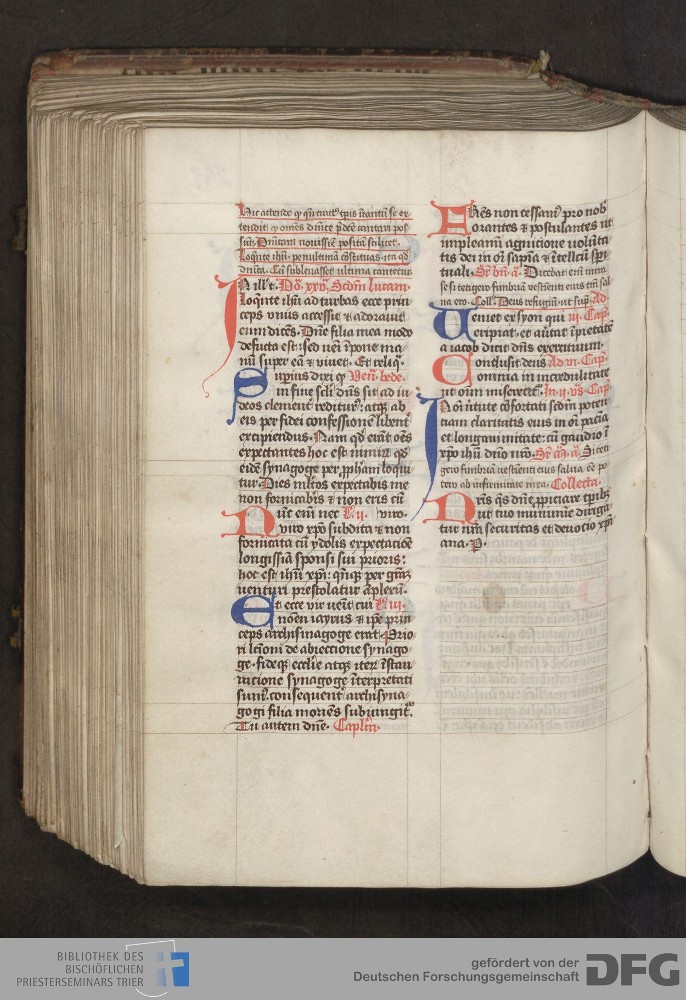 Hic attende q qn̄ tractꝰ tp̄is
tendit q om̄es dn̄ice p̄dce cantari pos
sūt. Dn̄icam nouissīe positā scilicet.
Loquēte ihū. penultimā
dn̄ica. Cū subleuasset ultima cantetur
In ill't. Do. xxv. Scdm̄ lucam.
Loquēte ihū ad turbas ecce prin
ceps vnus accessit ⁊ adorauit
eum dicēs. Dn̄e filia mea modo
defūcta est: sed ueni īpone ma
nū super eā ⁊ viuet. Et reliq.
Supius dixi q Ven. bede.
in fine scl'i dn̄s sit ad iu
deos clement' rediturꝰ: atqꝫ ab
eis per fidei confessionē libent'
excipiendus. Nam qd erāt oēs
expectantes hoc est nimir qd
eidē synagoge per ꝓph'am loqui
tur. Dies ml'tos expectabis me
non fornicab'is ⁊ non eris cū
viro.
Dūt eni nec R. ij.
viro xp̄o subdita ⁊ non
fornicata cū ydolis expectacōe
longissīa sponsi sui prioris:
hoc est ihū xp̄i: qn̄qꝫ per grāꝫ
uenturi prestolatur āplexū.
Et ecce vir uēit cui R. iij.
nōen iayrus ⁊ ip̄e prin
ceps archisinagoge erat. Prio
ri lc̄ioni de abiectione synago
ge fideqꝫ ecclīe atqꝫ iter īstau
racione synagoge īterpretati
sumꝰ. consequent' archisyna
gogi filia moriēs subiungitꝰ.
Tu autem dn̄e. Caplm̄.
nō cessamꝰ pro nob'
orantes ⁊ postulantes ut
impleamī agnicione volūta
tis dei in oī sapīa ⁊ ītellcū spi
tuali. Sr bn̄. a. Dicebat enī intra
se si tetigero fimbriā vestimēti eius tm̄ sal
ua ero. Coll'. Deus refugiū. ut sup. Ad
Ueniet ex syon qui iij. Cap.
eripiat. et au'tat īpietatē
a iacob dicit dn̄s exercituum.
Conclusit deus Ad vi. Cap.
omnia in incredulitate
ut oīm misereatr. In ij. vs. Cap.
In oī v'tute cōfortati scdm̄ poten
tiam claritatis eius in oī pacīa
et longanimitate: cū gaudio ī
xp̄o ihū dn̄o nr̄o. Sr m. a. Si teti
gero fimbriā vestimēti eius salua
ero ab infirmitate mea. Collecta
ū̄s qs dn̄e. ꝓpiciare tp̄ibꝫ
ut tuo munimīe diriga
tur nr̄m securitas et deuotio xp̄i
ana. P.
BIBLIOTHEK DES
BISCHÖFLICHEN
PRIESTERSEMINARS TRIER
gefördert von der
Deutschen Forschungsgemeinschaft
DFG